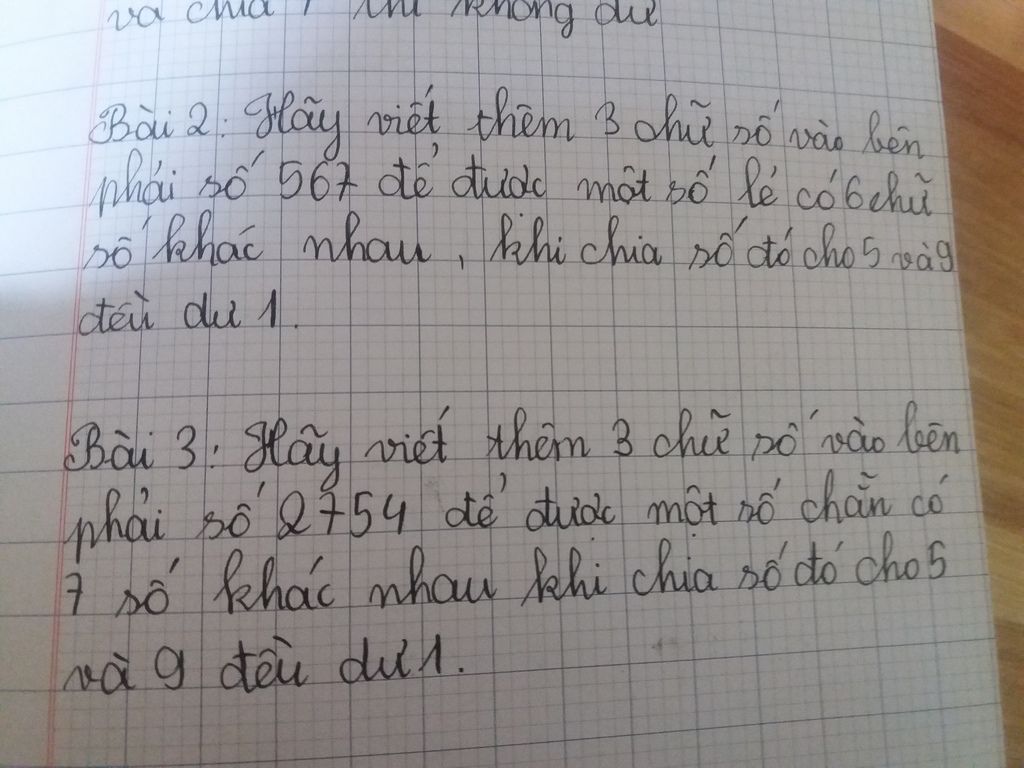 và chia 7 thì không dư
Bài 2: Hãy viết thêm 3 chữ số vào bên
phải số 567 để được một số lẻ có 6 chữ
số khác nhau, khi chia số đó cho 5 và 9
đều dư 1.
Bài 3: Hãy viết thêm 3 chữ số vào bên
phải số 2754 để được một số chẵn có
7 số khác nhau khi chia số đó cho 5
và 9 đều dư 1.